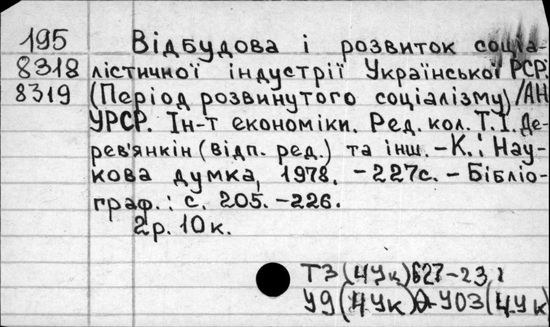 195 Відбудова і розвиток соціа-
8318 лістичної індустрії Української РСР.
8319 (Період розвинутого соціалізму)/АН
УРСР. Ін-т економіки. Ред. кол. Т.І. Де-
рев'янкін (відп. ред.) та інш. - К.: Нау-
кова думка, 1978. - 227с. - Бібліо-
граф.: с. 205. - 226.
2р. 10к.
Т3(4Ук)627-23,
У9(4Ук)0-У03(4Ук)